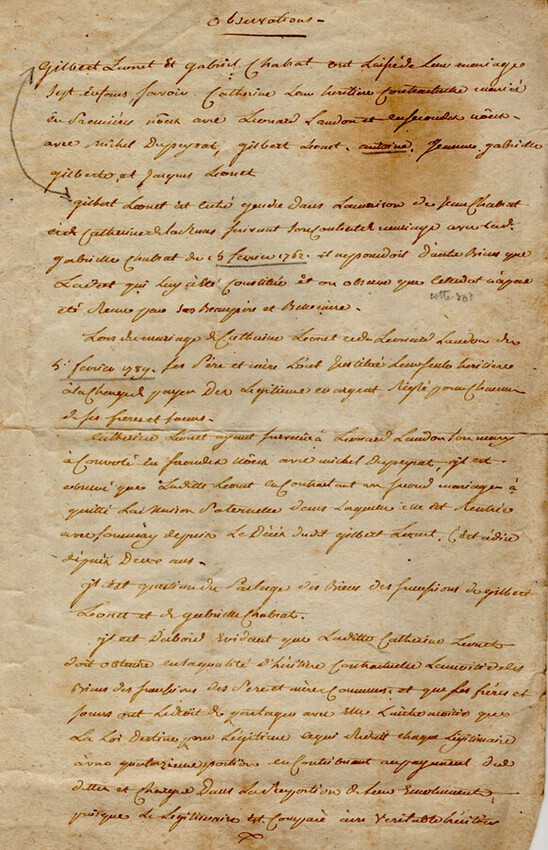 Observations -
Gilbert Leonet Et gabriel Chabat ont laissé de Leur mariage
sept Enfans savoir Catherine Leur heritiere Contractuelle mariée
En Premieres nôces avec Leonard Landon et en secondes nôces
avec michel Dupeyrat, gilbert Leonet, antoine, Jeanne, gabrielle
gilberte, et Jacques Leonet
gilbert Leonet Est Entré gendre dans La maison de Jean Chabat
et de Catherine de suivant son Contrat de mariage avec lad.
gabrielle Chabat du 6 fevrier 1762. il ne possedoit d'autre Biens que
La dot qui Luy a été Constituée et on observe que
cette dot
été Reçue par ses Beaupère et Bellemere.
Lors du mariage de Catherine Leonet et de Leonard Landon du
5. fevrier 1789. ses Père et mère L'ont Institué Leur seule heritiere
à la Charge de payer Des Legitimes en argent Réglé pour Chacun
de ses freres et soeurs.
Catherine Leonet ayant survecu à Leonard Landon son mary
à Convolé En secondes Nôces avec michel Dupeyrat, il est
observé que Laditte Leonet en Contractant un second mariage à
quitté La Maison Paternelle Dans Laquelle elle est Rentrée
avec son mary depuis Le Décès dudit gilbert Leonet. C'est à dire
depuis Deux ans.
il Est question du Partage des Biens des successions de gilbert
Leonet et de gabrielle Chabat.
il est Dabord Evidant que Laditte Catherine Leonet
doit obtenir en sa qualité D'héritiere Contractuelle La moitié des
Biens des successions des Pere et mère Communs, et que ses frères et
soeurs ont Le droit de partager avec Elle L'autre moitié que
La Loi Destine pour Legitime ce qui Reduit chaque Légitimaire
à une quatorzieme portion en Contribuant au payement des
dettes et Charges Dans La Proportion de Leur Emolument,
puisque Le Legitimaire est Comparé au Veritable héritier